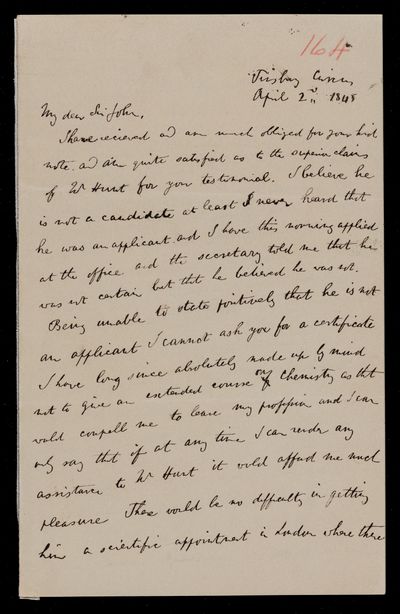 164
Finsbury Circus
April 2nd 1845
My dear Sir John,
I have received and am much obliged for your kind
note and am quite satisfied as to the superior claims
of Mr Hunt for your testimonial. I believe he
is not a candidate at least I never heard that
he was an applicant and I have this morning applied
at the office and the secretary told me that he
was not certain but that he believed he was not.
Being unable to state positively that he is not
an applicant I cannot ask you for a certificate
I have long since absolutely made up my mind
not to give an extended course of Chemistry as that
would compell me to leave my profession and I can
only say that if at any time I can render any
assistance to Mr Hunt it would afford me much
pleasure There would be no difficulty in getting
him a scientific appointment in London where there